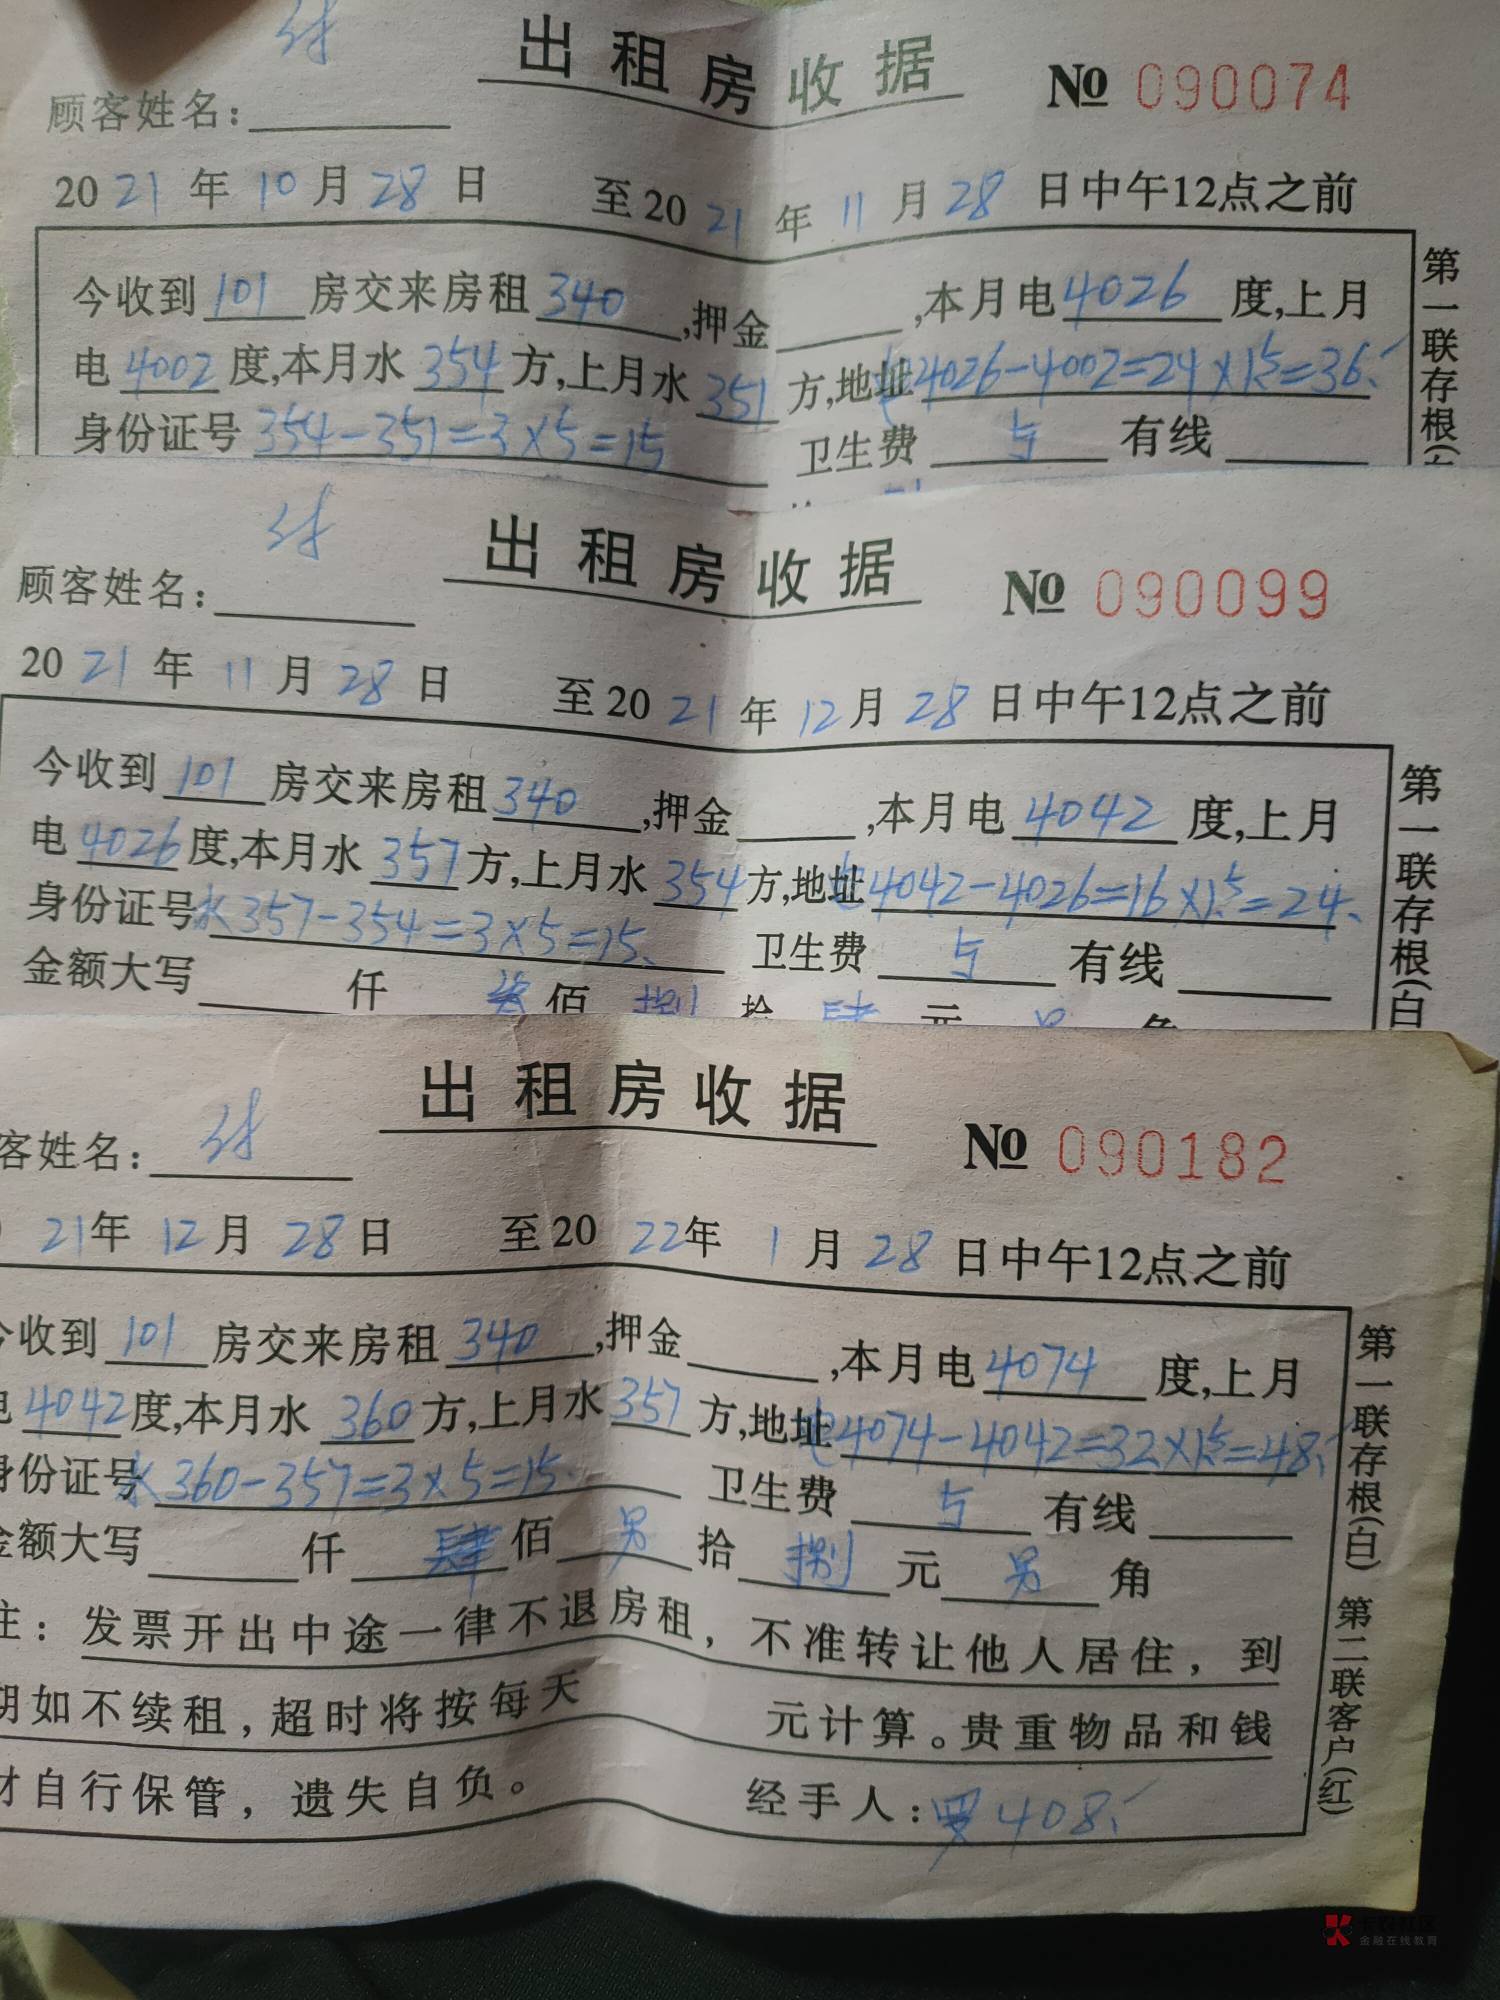 出租房收据 № 090074
顾客姓名：
2021年10月28日 至2021年11月28日中午12点之前
今收到101房交来房租340,押金 ,本月电4026度,上月
电4002度,本月水354方,上月水351方,地址电4026-4002=24×1.5=36.
身份证号354-351=3×5=15
卫生费5有线
第一联存根(
出租房收据 № 090099
顾客姓名：
2021年11月28日 至2021年12月28日中午12点之前
今收到101房交来房租340,押金 ,本月电4042度,上月
电4026度,本月水357方,上月水354方,地址电4042-4026=16×1.5=24.
身份证号水357-354=3×5=15. 卫生费5有线
金额大写 仟叁佰捌拾肆元另角
第一联存根(白
出租房收据 № 090182
客姓名：
21年12月28日 至2022年1月28日中午12点之前
收到101房交来房租340,押金 ,本月电4074度,上月
电4042度,本月水360方,上月水357方,地址电4074-4042=32×1.5=48.
身份证号水360-357=3×5=15. 卫生费5有线
金额大写 仟肆佰另拾捌元另角
注：发票开出中途一律不退房租，不准转让他人居住，到
期如不续租，超时将按每天 元计算。贵重物品和钱
财自行保管，遗失自负。 经手人：罗408.
第一联存根(白) 第二联客户(红)
金融在线教育